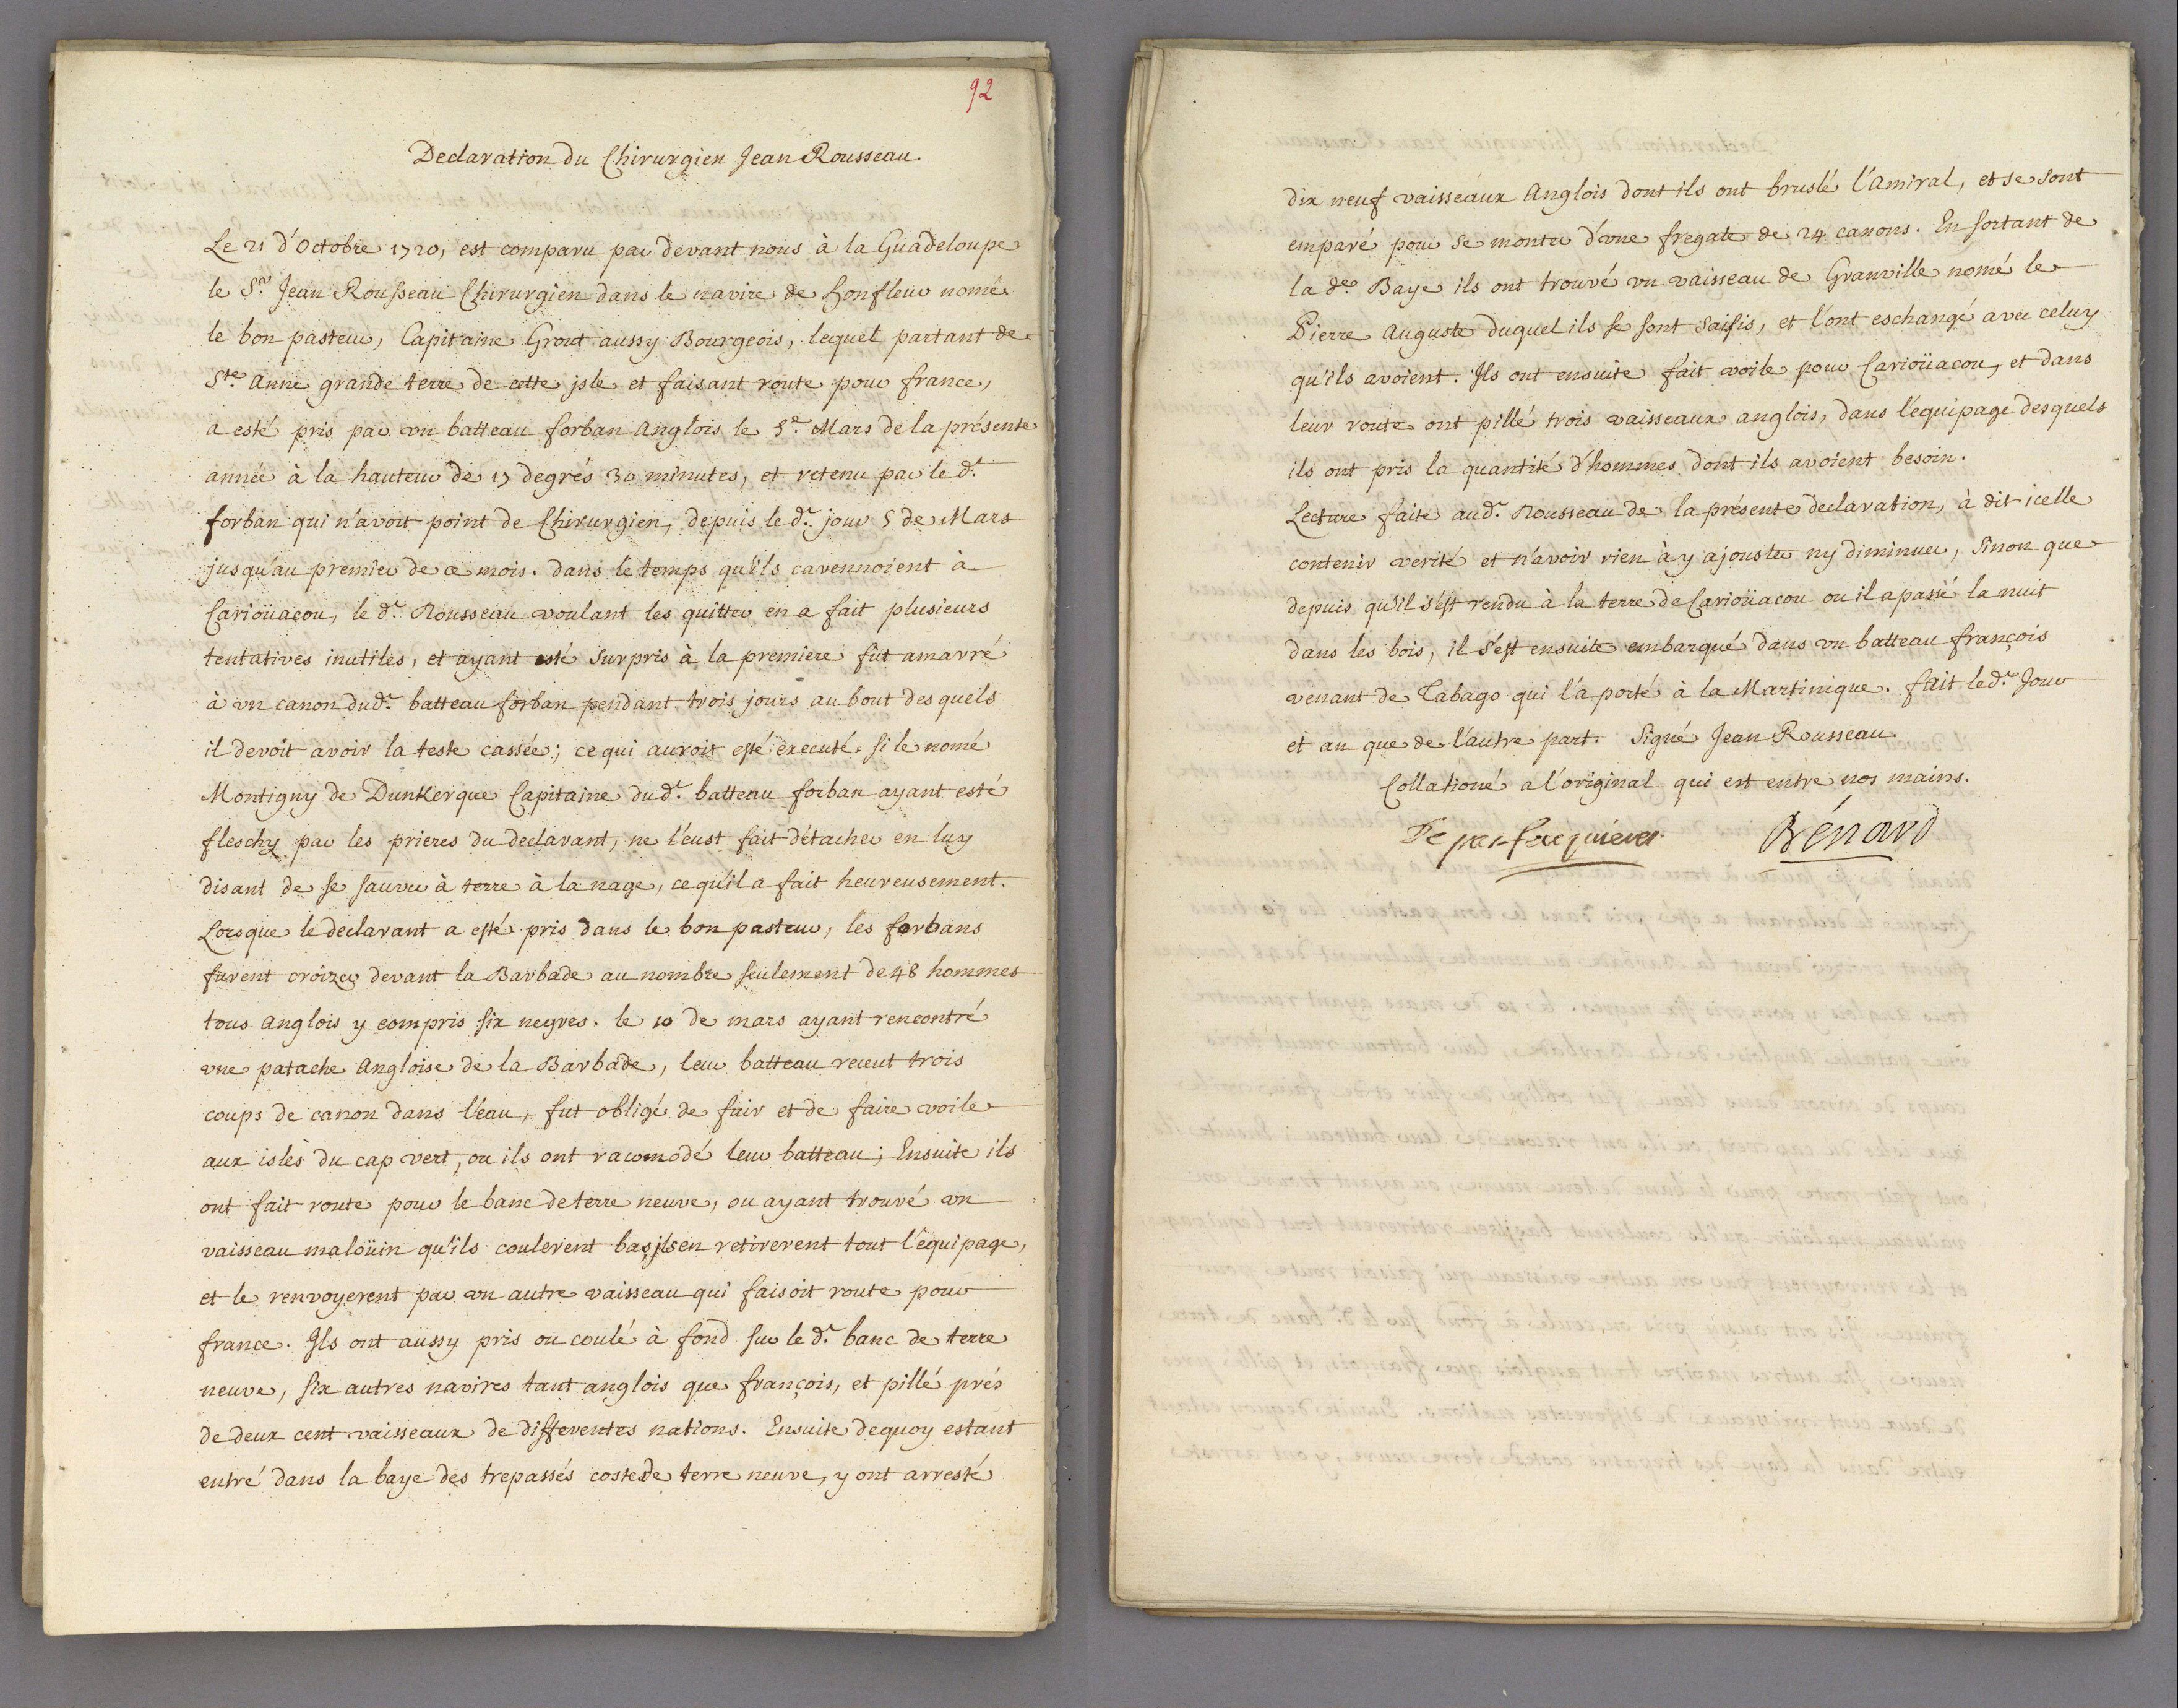 92
Declaration du Chirurgien Jean Rousseau.
Le 21 d'Octobre 1720, est comparu par devant nous à la Guadeloupe
le Sr. Jean Rousseau Chirurgien dans le navire de honfleur nomé
le bon pasteur, Capitaine Grout aussy Bourgeois, lequel partant de
Ste. Anne grande terre de cette jsle et faisant route pour france,
a esté pris par un batteau forban Anglois le 5e. Mars de la présente
année à la hauteur de 17 degrés 30 minutes, et retenu par le d.t
forban qui n'avoit point de Chirurgien, depuis le d.t jour 5 de Mars
jusqu'au premier de ce mois. dans le temps qu'ils carennoient à
Carioüacou, le d.t Rousseau voulant les quitter en a fait plusieurs
tentatives inutiles, et ayant esté surpris à la premiere fût amarré
à un canon dud.t batteau forban pendant trois jours au bout desquels
il devoit avoir la teste cassée; ce qui auroit esté executé si le nomé
Montigny de Dunkerque Capitaine dud.t batteau forban ayant esté
fleschy par les prieres du declarant, ne l'eust fait détacher en luy
disant de se sauver à terre à la nage, ce qu'il a fait heureusement.
Lorsque le declarant a esté pris dans le bon pasteur, les forbans
furent croizer devant la Barbade au nombre seulement de 48 hommes
tous Anglois y compris six negres. le 10 de mars ayant rencontré
une patache Angloise de la Barbade, leur batteau receut trois
coups de canon dans l'eau, fut obligé de fuir et de faire voile
aux isles du cap vert, ou ils ont racomodé leur batteau; Ensuite ils
ont fait route pour le banc de terre neuve, ou ayant trouvé un
vaisseau maloüin qu'ils coulerent bas, jls en retirerent tout l'equipage,
et le renvoyerent par un autre vaisseau qui faisoit route pour
france. Jls ont aussy pris ou coulé à fond sur le d.t banc de terre
neuve, six autres navires tant anglois que françois, et pillé prés
de deux cent vaisseaux de differentes nations. Ensuite dequoy estant
entré dans la baye des trepassés coste de terre neuve, y ont arresté
dix neuf vaisseaux Anglois dont ils ont bruslé l'Amiral, et se sont
emparé pour se monter d'une fregate de 24 canons. En sortant de
la de. Baye ils ont trouvé un vaisseau de Granville nomé le
Pierre Auguste duquel ils se sont saisis, et l'ont eschangé avec celuy
qu'ils avoient. Jls ont ensuite fait voile pour Carioüacou, et dans
leur route ont pillé trois vaisseaux anglois, dans l'equipage desquels
ils ont pris la quantité d'hommes dont ils avoient besoin.
Lecture faite aud.t Rousseau de la présente declaration, à dit icelle
contenir verité et n'avoir rien à y ajouster ny diminuer, sinon que
depuis qu'il s'est rendu à la terre de Carioüacou ou il a passé la nuit
dans les bois, il s'est ensuite embarqué dans un batteau françois
venant de Tabago qui l'a porté à la Martinique. fait le d.t Jour
et an que de l'autre part. Signé Jean Rousseau
Collationé a l'original qui est entre nos mains.
Bénard